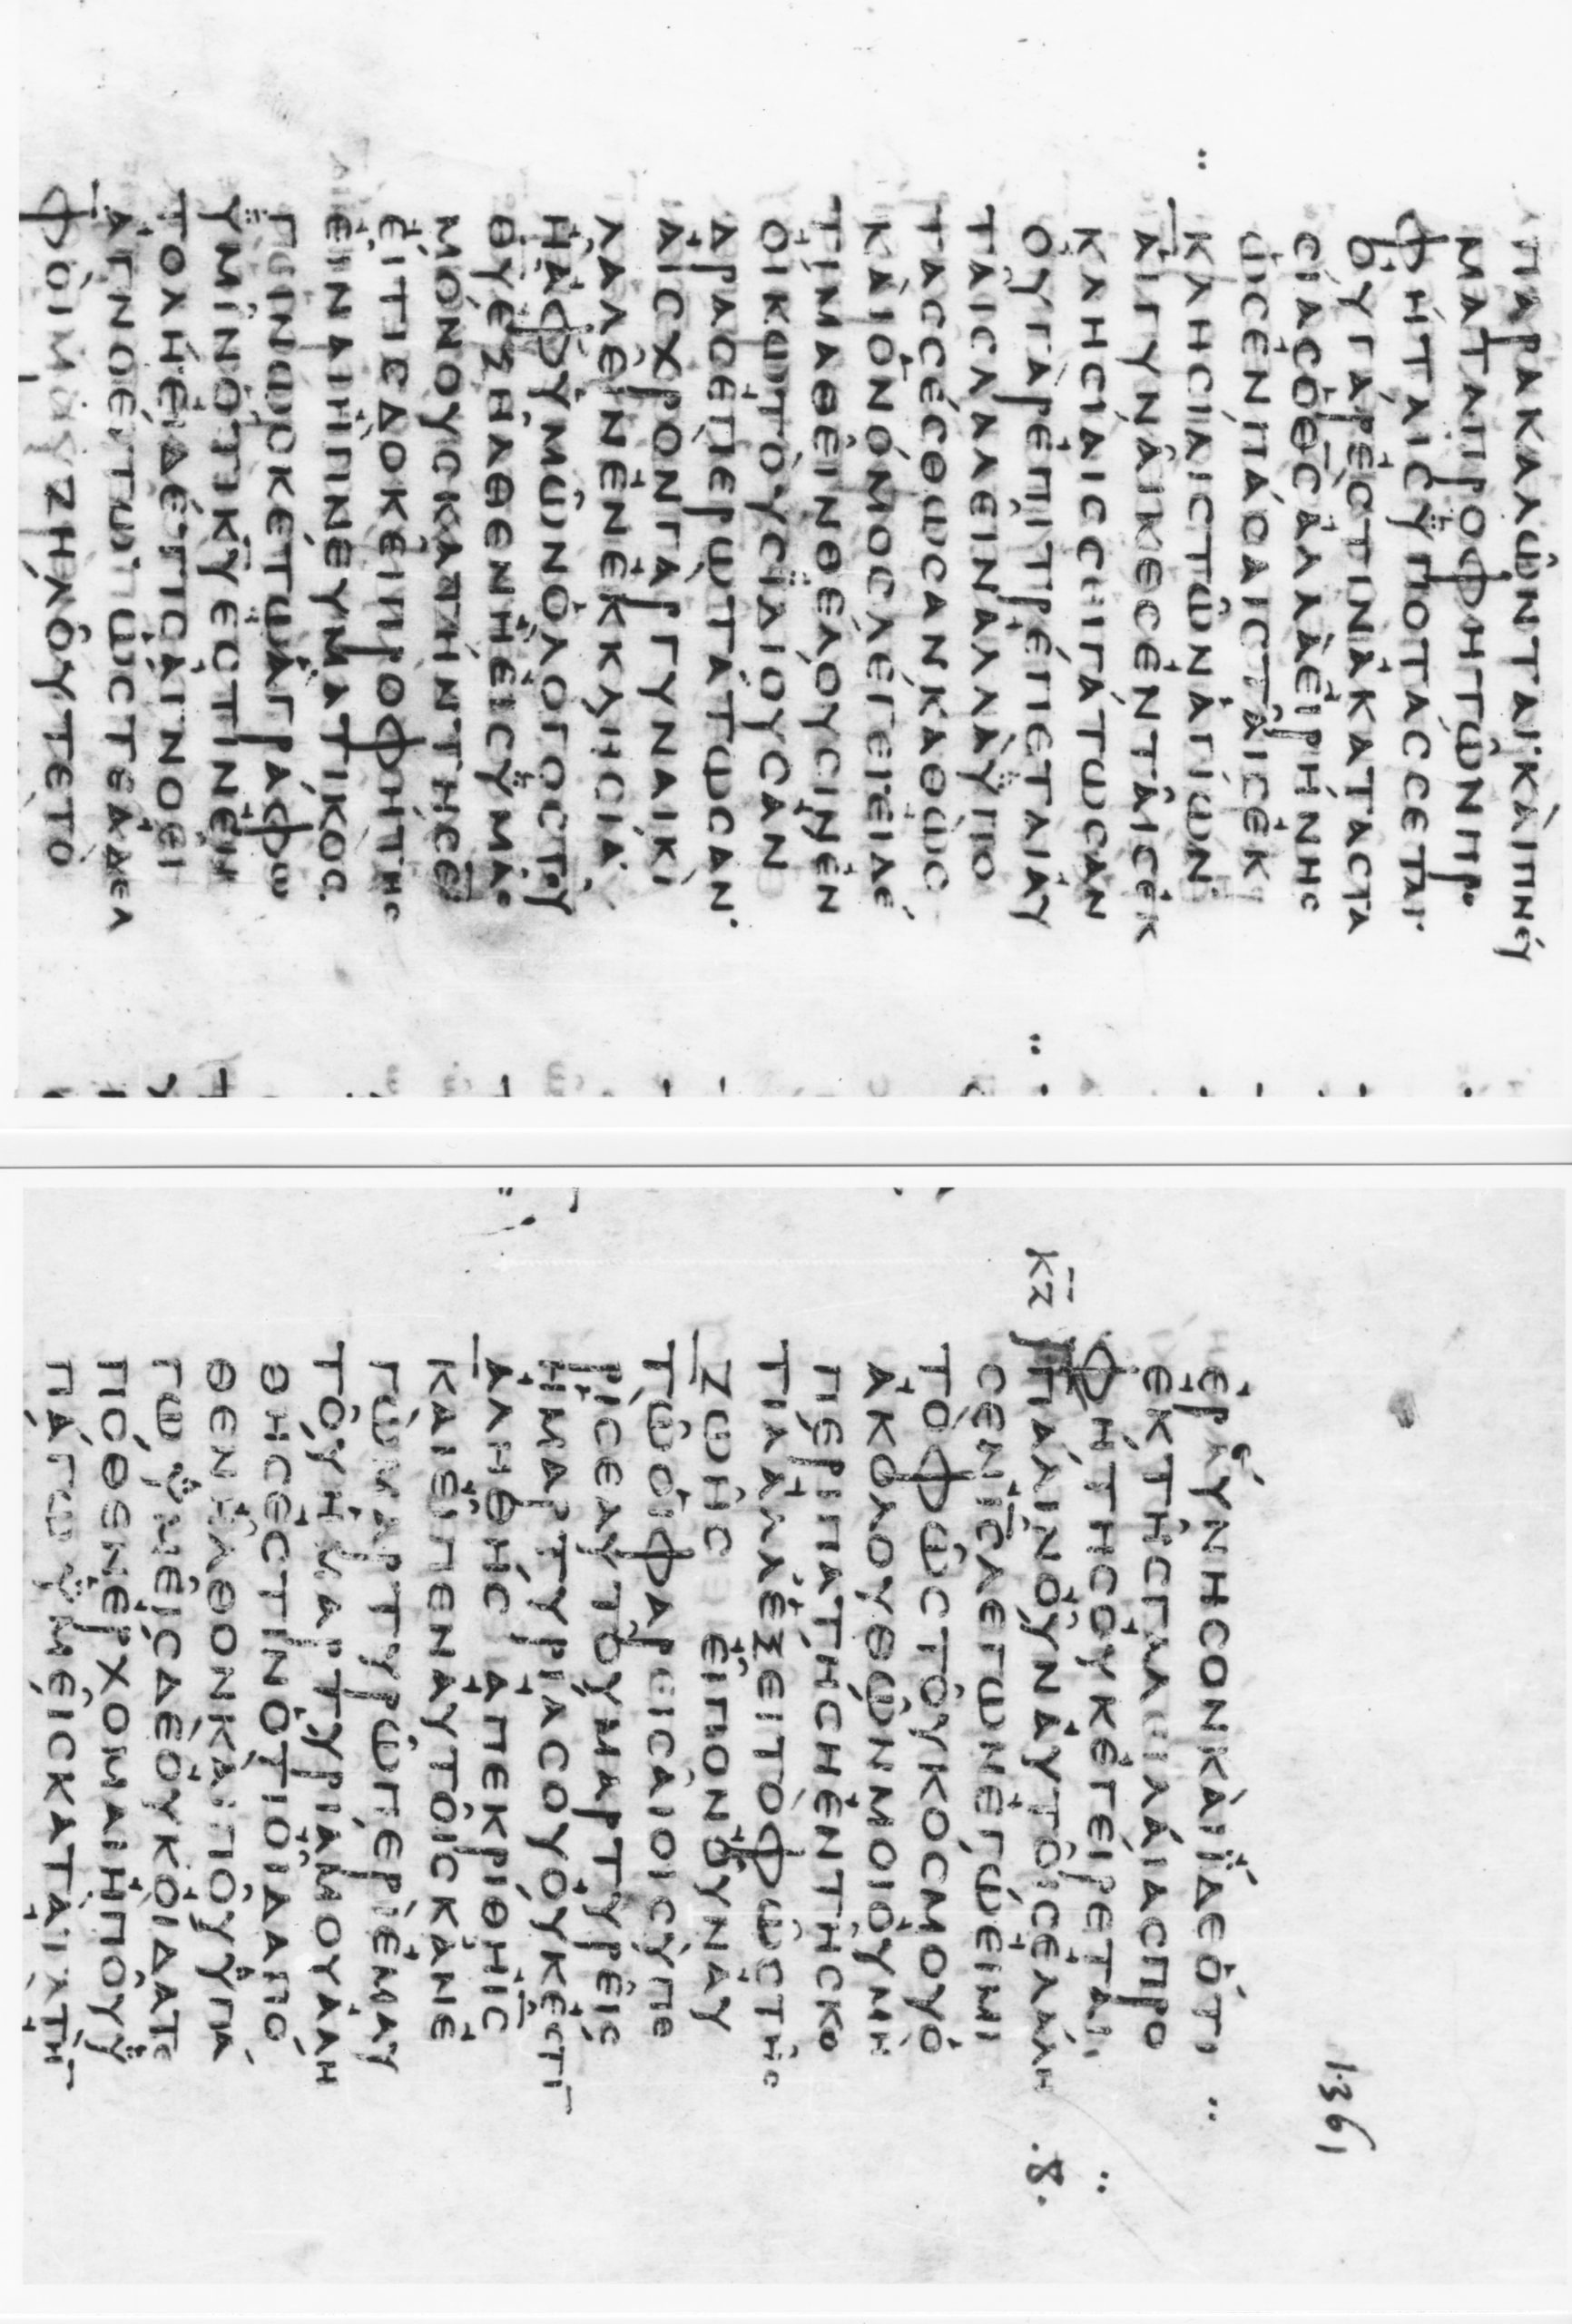 ΠΑΡΑΚΑΛΩΝΤΑΙΚΑΙΠΝΕΥ
ΜΑΤΑΠΡΟΦΗΤΩΝΠΡΟ
ΦΗΤΑΙϹΥΠΟΤΑϹϹΕΤΑΙ
ΟΥΓΑΡΕϹΤΙΝΑΚΑΤΑϹΤΑ
ϹΙΑϹΟΘ̅Ϲ̅ΑΛΛΑΕΙΡΗΝΗϹ
ΩϹΕΝΠΑϹΑΙϹΤΑΙϹΕΚ
ΚΛΗϹΙΑΙϹΤΩΝΑΓΙΩΝ
ΑΙΓΥΝΑΙΚΕϹΕΝΤΑΙϹΕΚ
ΚΛΗϹΙΑΙϹϹΕΙΓΑΤΩϹΑΝ
ΟΥΓΑΡΕΠΙΤΡΕΠΕΤΑΙΑΥ
ΤΑΙϹΛΑΛΕΙΝΑΛΛΑΥΠΟ
ΤΑϹϹΕϹΘΩϹΑΝΚΑΘΩϹ
ΚΑΙΟΝΟΜΟϹΛΕΓΕΙΕΙΔΕ
ΤΙΜΑΘΕΙΝΘΕΛΟΥϹΙΝΕΝ
ΟΙΚΩΤΟΥϹΙΔΙΟΥϹΑΝ
ΔΡΑϹΕΠΕΡΩΤΑΤΩϹΑΝ·
ΑΙϹΧΡΟΝΓΑΡΓΥΝΑΙΚΙ
ΛΑΛΕΙΝΕΝΕΚΚΛΗϹΙΑ
ΗΑΦΥΜΩΝΟΛΟΓΟϹΤΟΥ
Θ̅Υ̅ΕΞΗΛΘΕΝΗΕΙϹΥΜΑϹ
ΜΟΝΟΥϹΚΑΤΗΝΤΗϹΕ̅
ΕΙΤΙϹΔΟΚΕΙΠΡΟΦΗΤΗϹ
ΕΙΝΑΙΗΠΝΕΥΜΑΤΙΚΟϹ
ΓΕΙΝΩϹΚΕΤΩΑΓΡΑΦΩ
ΥΜΙΝΟΤΙΚ̅Υ̅ΕϹΤΙΝΕΝ
ΤΟΛΗΕΙΔΕΤΙϹΑΓΝΟΕΙ
ΑΓΝΟΕΙΤΩΩϹΤΕΑΔΕΛ
ΦΟΙΜΟΥΖΗΛΟΥΤΕΤΟ
1361
ΕΡΑΥΝΗϹΟΝΚΑΙΙΔΕΟΤΙ
ΕΚΤΗϹΓΑΛΕΙΛΑΙΑϹΠΡΟ
ΦΗΤΗϹΟΥΚΕΓΕΙΡΕΤΑΙ
ΠΑΛΙΝΟΥΝΑΥΤΟΙϹΕΛΑΛΗ .8.
ϹΕΝΙ̅Ϲ̅ΛΕΓΩΝΕΓΩΕΙΜΙ
ΤΟΦΩϹΤΟΥΚΟϹΜΟΥΟ
ΑΚΟΛΟΥΘΩΝΜΟΙΟΥΜΗ
ΠΕΡΙΠΑΤΗϹΗΕΝΤΗϹΚΟ
ΤΙΑΑΛΛΕΞΕΙΤΟΦΩϹΤΗϹ
ΖΩΗϹ ΕΙΠΟΝΟΥΝΑΥ
ΤΩΟΙΦΑΡΕΙϹΑΙΟΙϹΥΠΕ
ΡΙϹΕΑΥΤΟΥΜΑΡΤΥΡΕΙϹ
ΗΜΑΡΤΥΡΙΑϹΟΥΟΥΚΕϹΤΙ̅
ΑΛΗΘΗϹ ΑΠΕΚΡΙΘΗΙ̅Ϲ̅
ΚΑΙΕΙΠΕΝΑΥΤΟΙϹΚΑΝΕ
ΓΩΜΑΡΤΥΡΩΠΕΡΙΕΜΑΥ
ΤΟΥΗΜΑΡΤΥΡΙΑΜΟΥΑΛΗ
ΘΗϹΕϹΤΙΝΟΤΙΟΙΔΑΠΟ
ΘΕΝΗΛΘΟΝΚΑΙΠΟΥΥΠΑ
ΓΩΥΜΕΙϹΔΕΟΥΚΟΙΔΑΤΕ
ΠΟΘΕΝΕΡΧΟΜΑΙΗΠΟΥΥ
ΠΑΓΩΥΜΕΙϹΚΑΤΑΤΗ̅